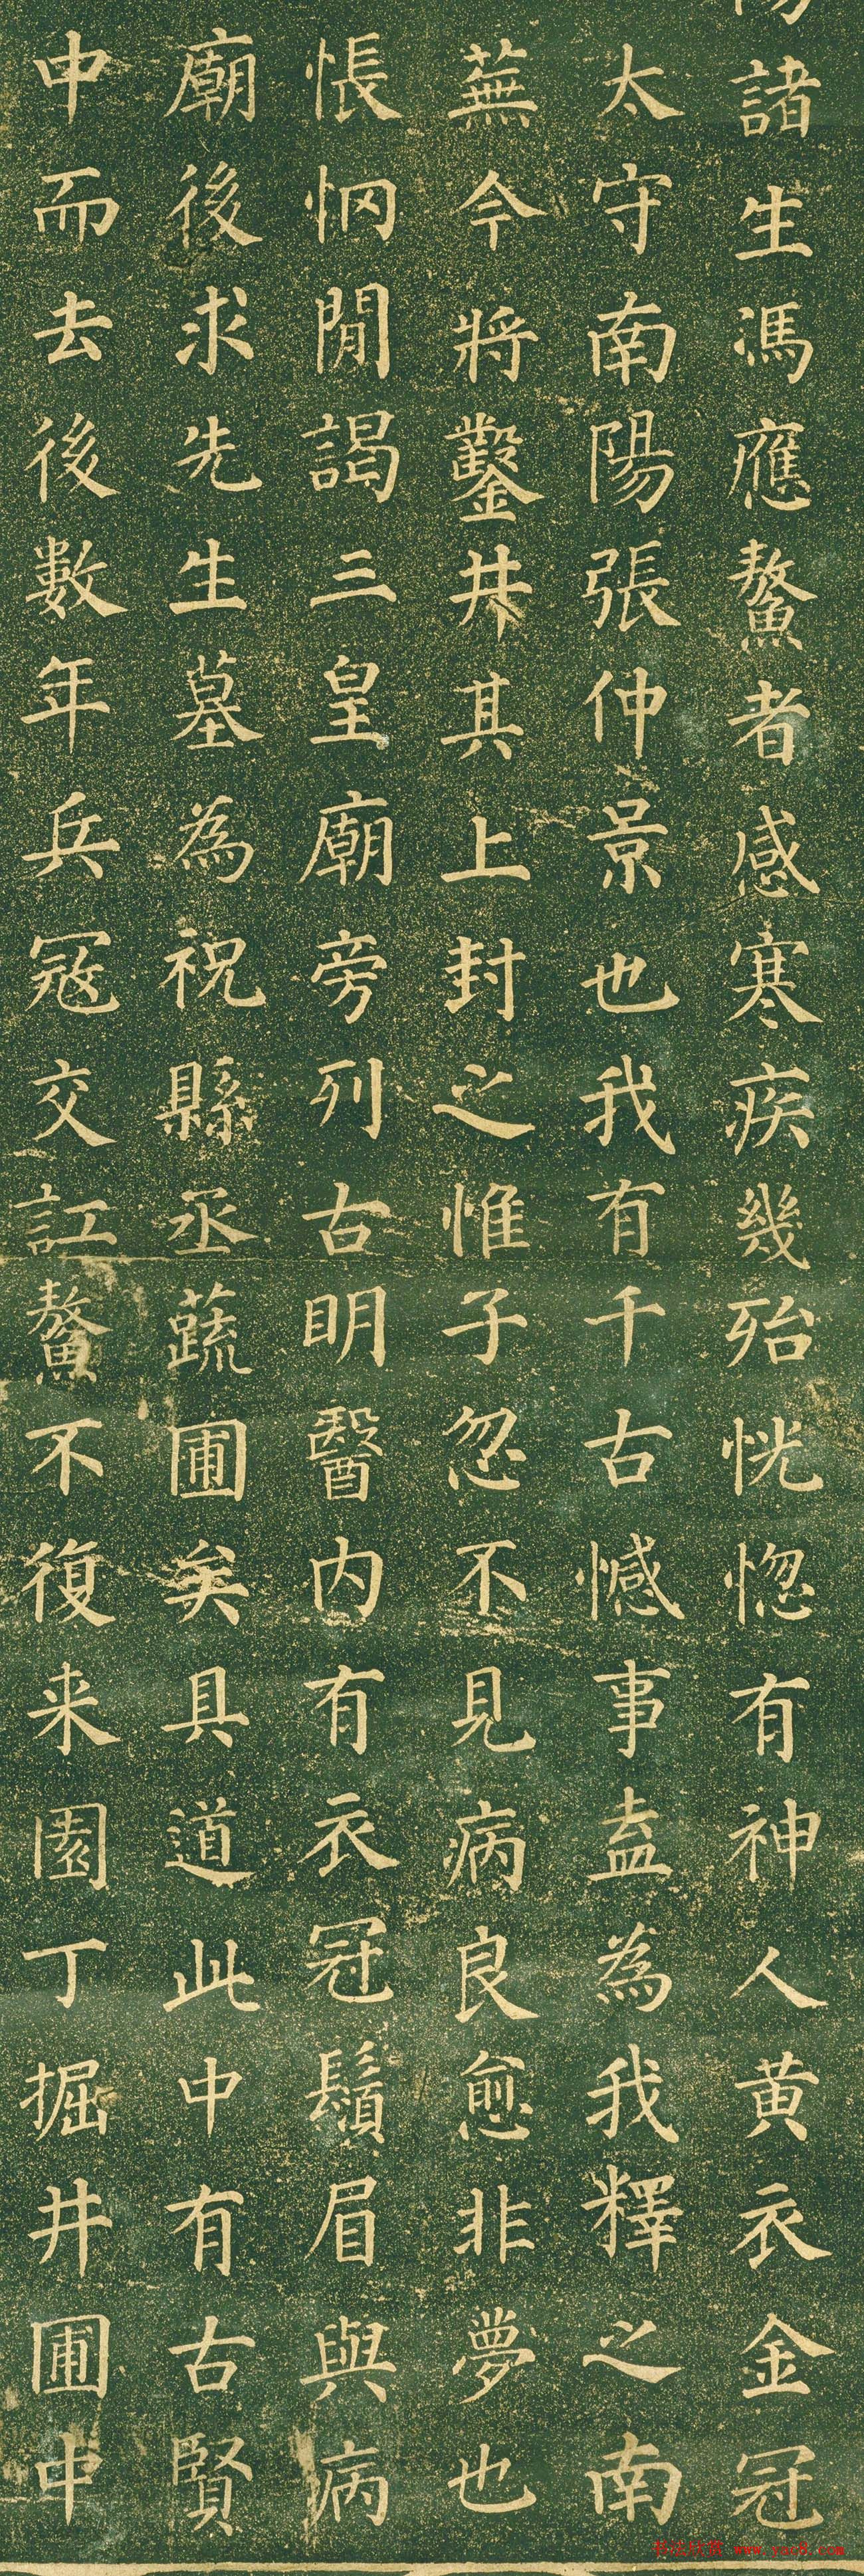 諸生馮應鰲者感寒疾幾殆恍惚有神人黄衣金冠
太守南陽張仲景也我有千古憾事盍為我釋之南
蕪今將鑿井其上封之惟子忽不見病良愈非夢也
悵惘閒謁三皇廟旁列古明醫内有衣冠鬚眉與病
廟後求先生墓為祝縣丞蔬圃矣具道此中有古賢
中而去後數年兵冦交訌鰲不復来園丁掘井圃中
www.yac8.com